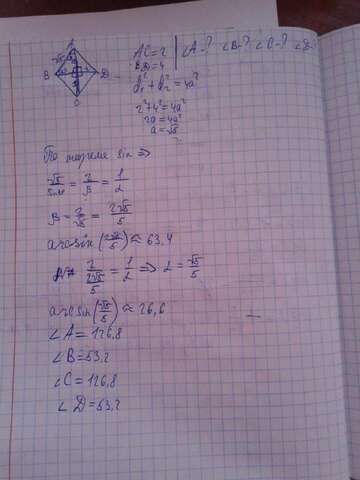 A
√5
B
D
C
AC=2
BD=4
∠A-? ∠B-? ∠C-? ∠D-
d₁²+d₂²=4a²
2²+4²=4a²
20=4a²
a=√5
По теореме sin ⇒
√5/sin = 2/β = 1/α
β = 2/√5 = 2√5/5
arcsin(2√5/5) ≈ 63,4
2/(2√5/5) = 1/α ⇒ α = √5/5
arcsin(√5/5) ≈ 26,6
∠A=126,8
∠B=53,2
∠C=126,8
∠D=53,2